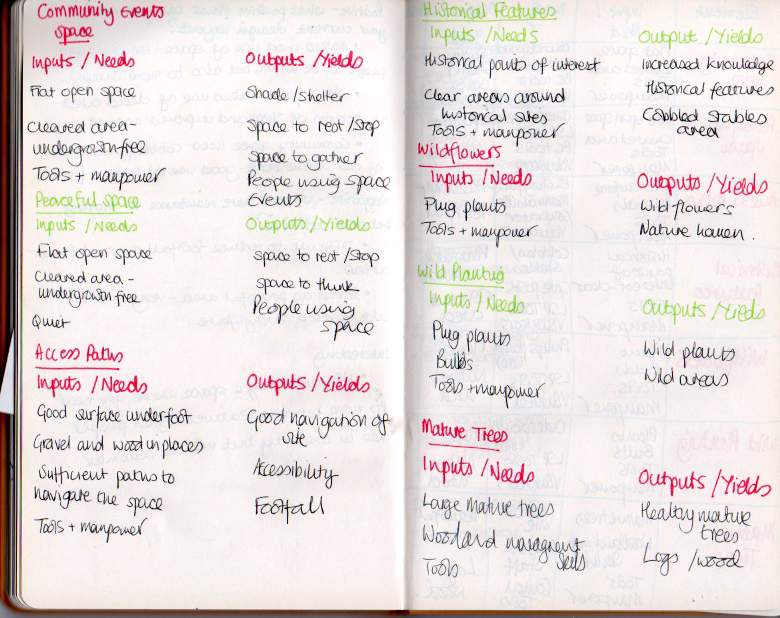 Community Events
Space
Inputs / Needs
Outputs / Yields
Flat open space
Shade / shelter
Cleared area -
undergrowth free
Space to rest / stop
Space to gather
Tools + manpower
People using space
Events
Peaceful space
Inputs / Needs
Outputs / Yields
Flat open space
space to rest / stop
Cleared area -
undergrowth free
space to think
People using
space
Quiet
Access Paths
Inputs / Needs
Outputs / Yields
Good surface underfoot
Good navigation of
site
Gravel and wood in places
Accessibility
Sufficient paths to
navigate the space
Footfall
Tools + manpower
Historical Features
Inputs / Needs
Output / Yields
Historical points of interest
Increased knowledge
Historical features
Clear areas around
historical sites
Cobbled stables
area
Tools + manpower
Wildflowers
Inputs / Needs
Outputs / Yields
Plug plants
Wildflowers
Tools + manpower
Nature haven.
Wild Planting
Inputs / Needs
Outputs / Yields
Plug plants
Wild plants
Bulbs
Wild areas
Tools + manpower
Mature Trees
Inputs / Needs
Outputs / Yields
Large mature trees
Healthy mature
trees
Woodland
skills
Logs / wood
Tools